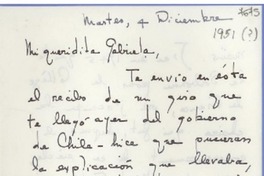 7673
Martes, 4 Diciembre
1951 (?)
Mi queridita Gabriela,
Te envío en ésta
el recibo de un giro que
te llegó ayer del gobierno
de Chile - hice que pusieran
la explicación que llevaba,